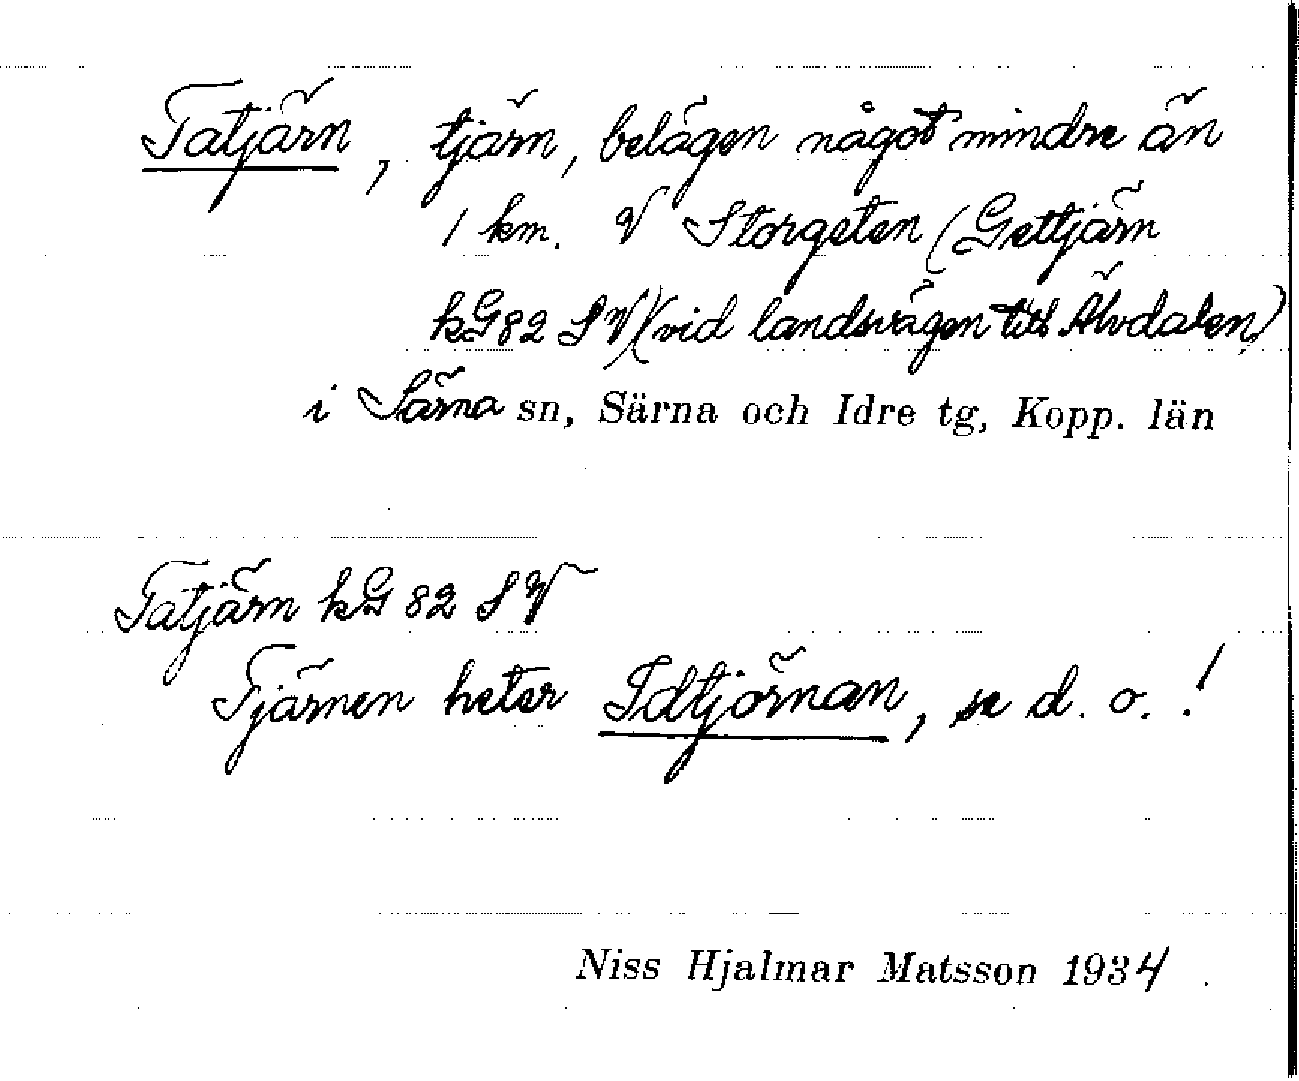 Tatjärn, tjärn, belägen något mindre än
1 km. V Storgeten (Gettjärn
kG82 SV) (vid landsvägen till Älvdalen)
i Särna sn, Särna och Idre tg, Kopp. län
Tatjärn kG 82 SV
Tjärnen heter Idtjörnan, se d. o.!
Niss Hjalmar Matsson 1934.